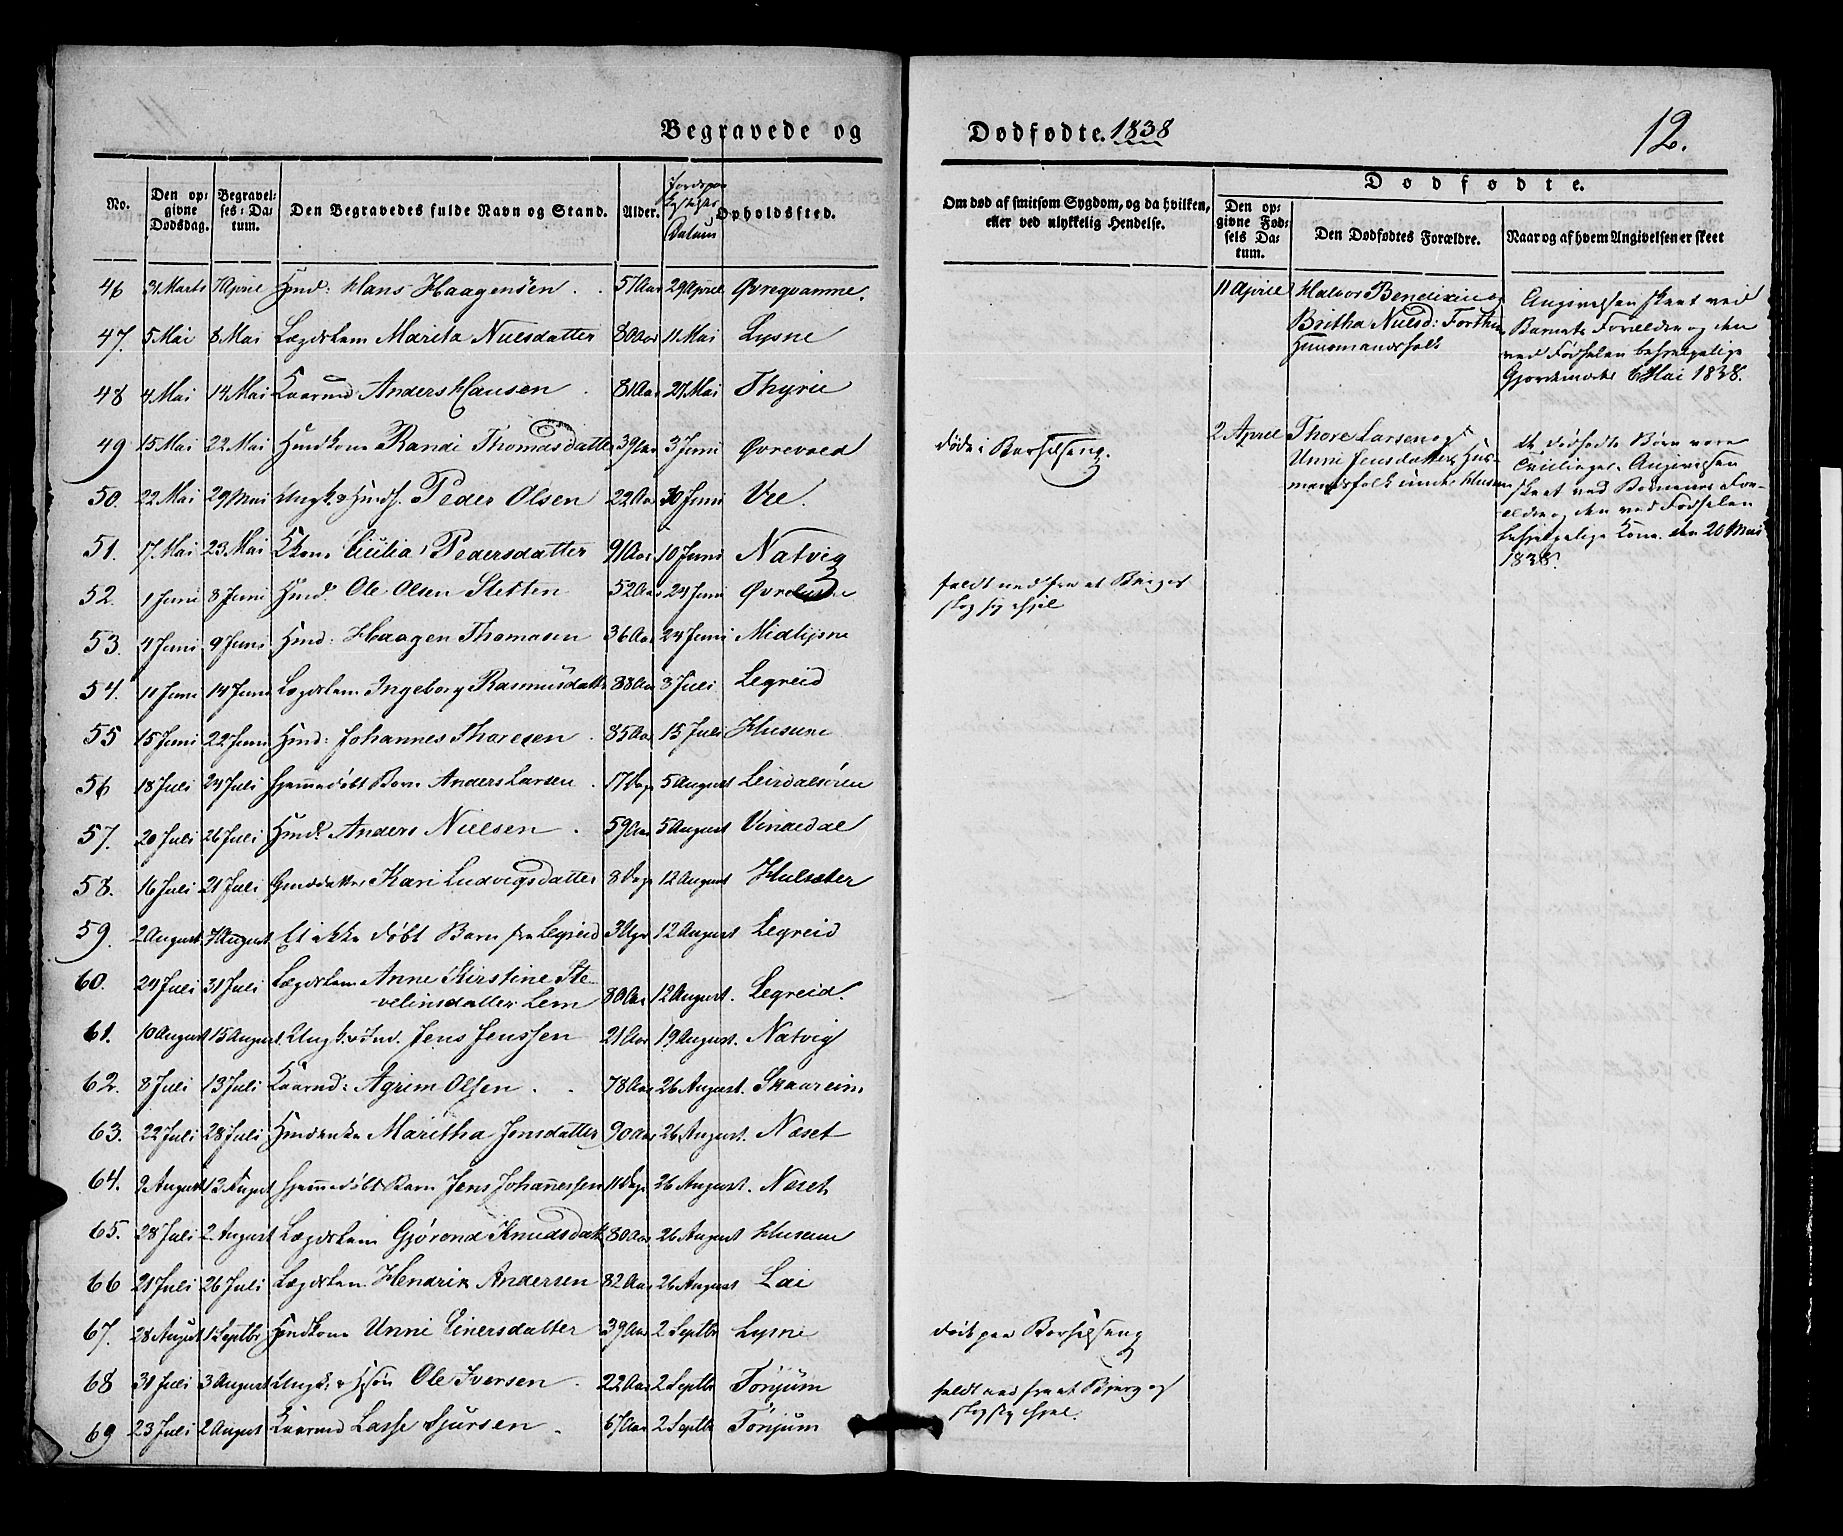 Begravede og Dødfødte. 1838
12.
No. Den opgivne Dødsdag. Begravelses-Datum. Den Begravedes fulde Navn og Stand. Alder. Jordspaa Datum Opholdssted.
46 31 Marts 7 April Hmd: Hans Haagensen 57 Aar 29 April Øvreqvamme.
47. 5 Mai 8 Mai Lægdslem Marita Nielsdatter 80 Aar 11 Mai Lysne
48 4 Mai 14 Mai Kaarmd Anders Hansen 81 Aar 27 Mai Thyrie
49 15 Mai 22 Mai Hmdkone Randi Thomasdatter 39 Aar 3 Juni Øvrevold
50. 22 Mai 29 Mai Ungk. & Hmds. Peder Olsen 22 Aar 10 Juni Vee.
51. 17. Mai 23. Mai Kkone Cicilia Pedersdatter 91 Aar 10 Juni Natvig
52. 1 Juni 8 Juni Hmd. Ole Olsen Stetten 52 Aar 24 Juni Øvrelysne
53. 4 Juni 9 Juni Hmd: Haagen Thomasen 36 Aar 24 Juni Midlysne
54. 10 Juni 14 Juni Lægdslem Ingeborg Rasmusdatter 88 Aar 3 Juli Legreid
55 15 Juni 22 Juni Hmd: Johannes Thoresen 85 Aar 15 Juli Husum
56 18 Juli 24 Juli hjemmedøbt Barn Anders Larsen 17 Dage 5 August Leirdalsøren
57. 20 Juli 26 Juli Hmd: Anders Nielsen 59 Aar 5 August Vindedal
58. 16 Juli 21 Juli Gmddatter Kari Ludvigsdatter 8 Dage 12 August Hulsæter
59. 2 August 7 August Et ikke døbt Barn fra Legreid 3 Uger 12 August Legreid
60. 24 Juli 31 Juli Lægdslem Anne Kirstine Ste-
velinsdatter Lem 80 Aar 12 August. Legreid.
61. 10 August 15 August. Ungk. & Ind. Jens Jenssen 21 Aar 19 August. Natvig
62. 8 Juli 13 Juli Kaarmd: Agrim Olsen 78 Aar 26 August. Skaareim
63. 22 Juli 28 Juli Hmdenke Maritha Jonsdatter 90 Aar 26 August. Næset
64. 2 August 12 August hjemmedøbt Barn Jens Johanessen 11 Dage 26 August. Næset
65. 28 Juli 2 August Lægdslem Gjørond Knudsdatter 80 Aar 26 August Husum
66 21 Juli 26 Juli Lægdslem Hendrik Andersen 82 Aar 26 August Lai
67. 28 August 1 Septbr Hmdkone Unni Einersdatter 39 Aar 2 Septbr Lysne
68 31 Juli 3 August Ungk. & Hsøn Ole Iversen 22 Aar 2 Septbr Tønjum
69 23 Juli 2 August Kaarmd Lasse Sjursen 67 Aar 2 Septbr Tønjum
Om død af smitsom Sygdom, og da hvilken, eller ved ulykkelig Hendelse.
døde i Barselseng.
faldt ned fra et Bierg og
slog sig ihjel
død paa Barselseng
faldt ned fra et Bierg og
slog sig ihjel.
Dødfødte.
Den opgivne Fødsels Datum. Den Dødfødtes Forældre. Naar og af hvem Angivelsen er skeet
11 April Halvor Bendixen og
Britha Nielsd: Forthun
Huusmandsfolk
Angivelsen skeet ved
Barnets Forældre og den
ved Fødselen behjelpelige
Gjordemoder 6 Mai 1838.
2 April Thore Larsen og
Unni Jensdatter Hus-
mandsfolk under Husum
de dødfødte Børn vare
Tvillinger. Angivelsen
skeet ved Børnenes For-
ældre og den ved Fødselen
behjelpelige Kone den 20 Mai
1838.